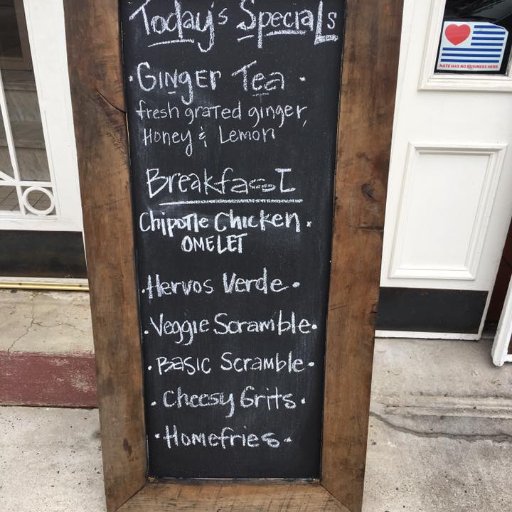 Today's Specials
·Ginger Tea·
fresh grated ginger,
Honey & Lemon
Breakfast
Chipotle Chicken·
OMELET
·Hervos Verde·
·Veggie Scramble·
·Basic Scramble·
·Cheesy Grits·
·Homefries·
HATE HAS NO BUSINESS HERE